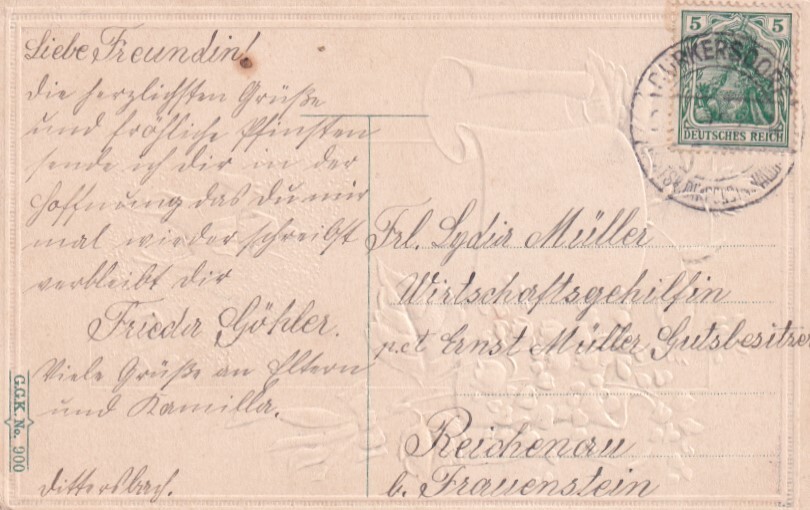 Liebe Freundin!
die herzlichsten Grüße
und fröhliche Pfinsten
sende ich dir in der
Hoffnung das du mir
mal wieder schreibst
verbleibt dir
Frieda Göhler.
Viele Grüße an Eltern
und Kamilla.
Dittersbach.
G.G.K. No. 900
5 5
DEUTSCHES REICH
Frl. Lydia Müller
Wirtschaftsgehilfin
p.ct Ernst Müller Gutsbesitzer
Reichenau
b. Frauenstein